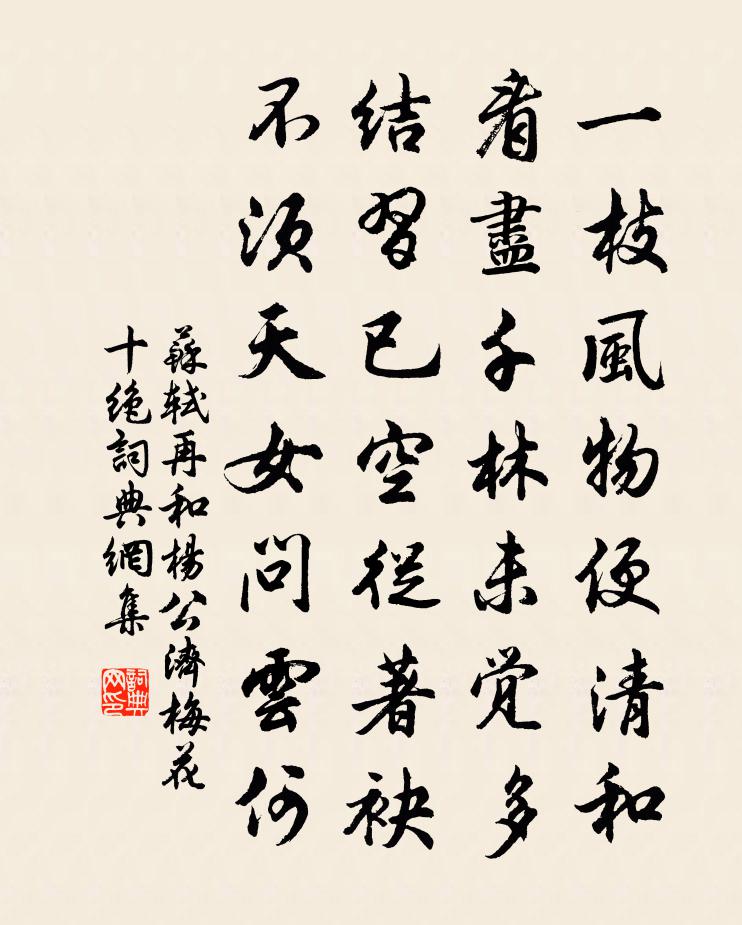 一枝風物便清和
看盡千林未覚多
結習已空從著袂
不須天女問雲何
蘇軾再和楊公濟梅花
十絶詞典網集
詞典網印